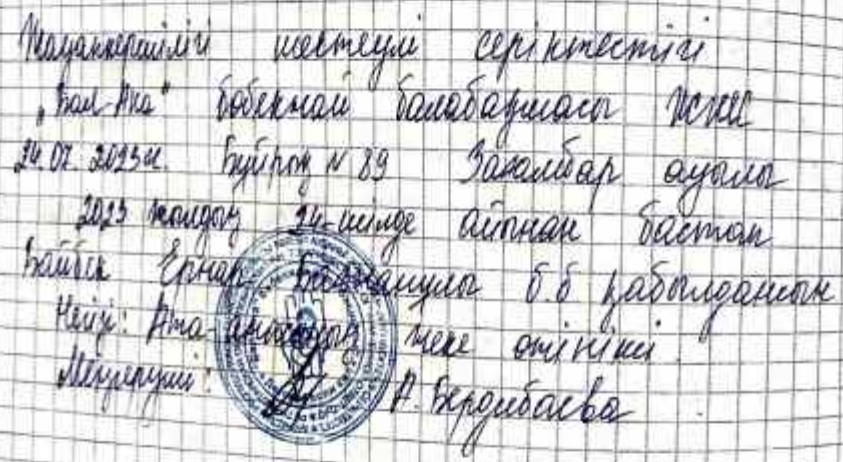 Жауапкершілігі шектеулі серіктестігі
"Бал-Ана" бөбекжай балабақшасы ЖШС
24.07.2023ж. Бұйрық № 89 ауылы
2023 жылдың 24-шілде айынан бастап
Байбек Ернар б.б қабылдансын
Негізі: Ата-анасының жеке өтініші.
Меңгеруші: А. Бердибаева